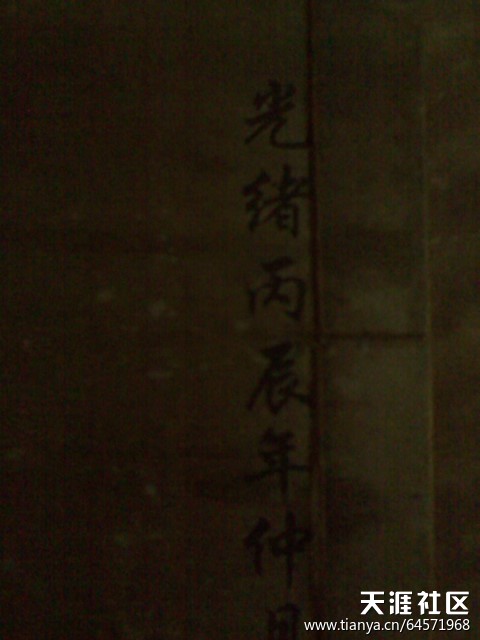 光绪丙辰年仲
天涯社区
www.tianya.cn/64571968